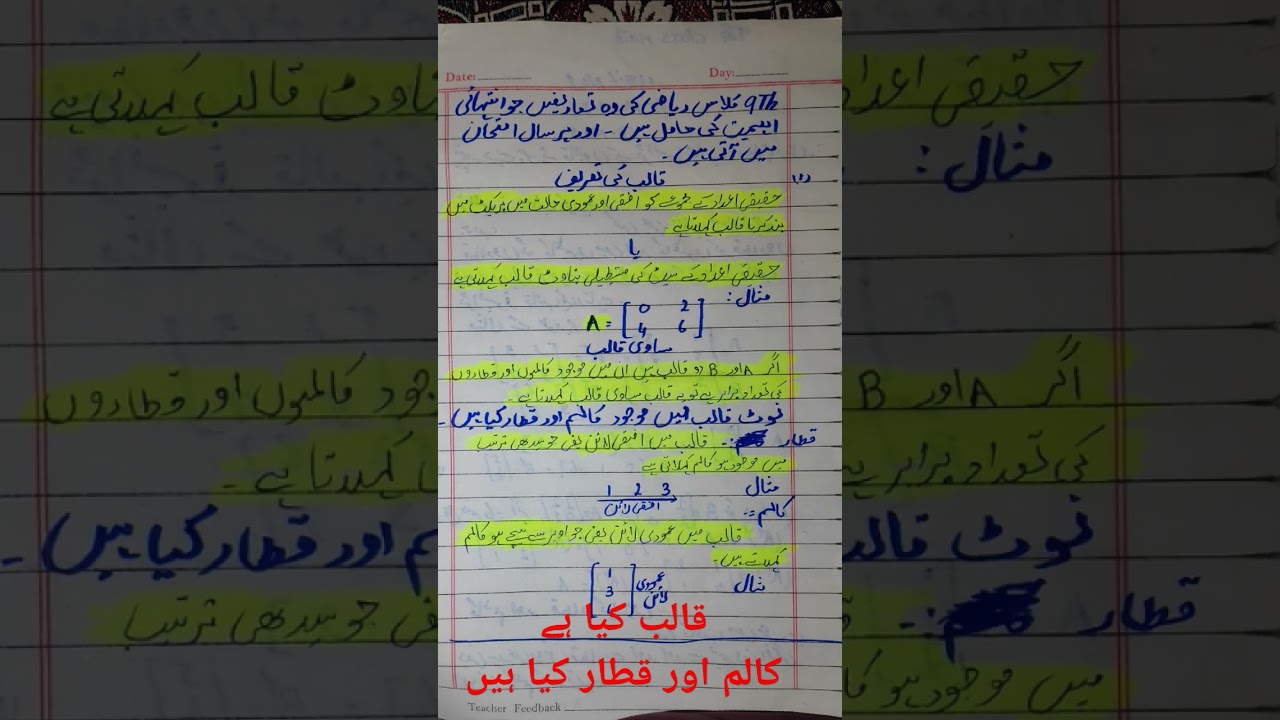 Date: Day:
9Th کلاس ریاضی کی وہ تعاریفیں جو انتہائی
اہمیت کی حامل ہیں ۔ اور ہر سال امتحان
میں آتی ہیں ۔
(1) قالب کی تعریف
حقیقی اعداد کے مجموعے کو افقی اور عمودی حالت میں بریکٹ میں
بند کرنا قالب کہلاتا ہے ۔
یا
حقیقی اعداد کے سیٹ کی مستطیلی بناوٹ قالب کہلاتی ہے
مثال :
A = [ 0 2
4 6 ]
مساوی قالب
اگر A اور B دو قالب ہیں ان میں موجود کالموں اور قطاروں
کی تعداد برابر ہے تو یہ قالب مساوی قالب کہلاتا ہے ۔
نوٹ قالب میں موجود کالم اور قطار کیا ہیں ۔
قطار :۔ قالب میں افقی لائن یعنی جو سیدھی ترتیب
میں موجود ہو کالم کہلاتی ہے
مثال 1 2 3
افقی لائن
کالم :۔
قالب میں عمودی لائن یعنی جو اوپر سے نیچے ہو کالم
کہلاتے ہیں ۔
مثال [ 1
3 ] عمودی لائن
قالب کیا ہے
کالم اور قطار کیا ہیں
Teacher Feedback